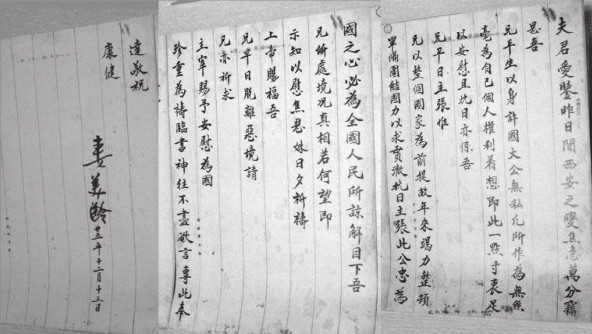 夫君愛鑒昨日聞西安之變焦急萬分竊
思吾
兄平生以身許國大公無私凡所作為無絲
毫為自己個人權利着想即此一點寸衷足
以安慰且抗日亦係吾
兄平日主張惟
兄以整個國家為前提故年來竭力整頓
軍備團結國力以求貫徹抗日主張此公忠為
國之心必為全國人民所諒解目下吾
兄所處境況真相若何望即
示知以慰焦思妹日夕祈禱
上帝賜福吾
兄早日脫離惡境請
兄亦祈求
主宰賜予安慰為國
珍重為禱臨書神往不盡欲言專此奉
達敬祝
康健
妻美齡 廿五年十二月十三日